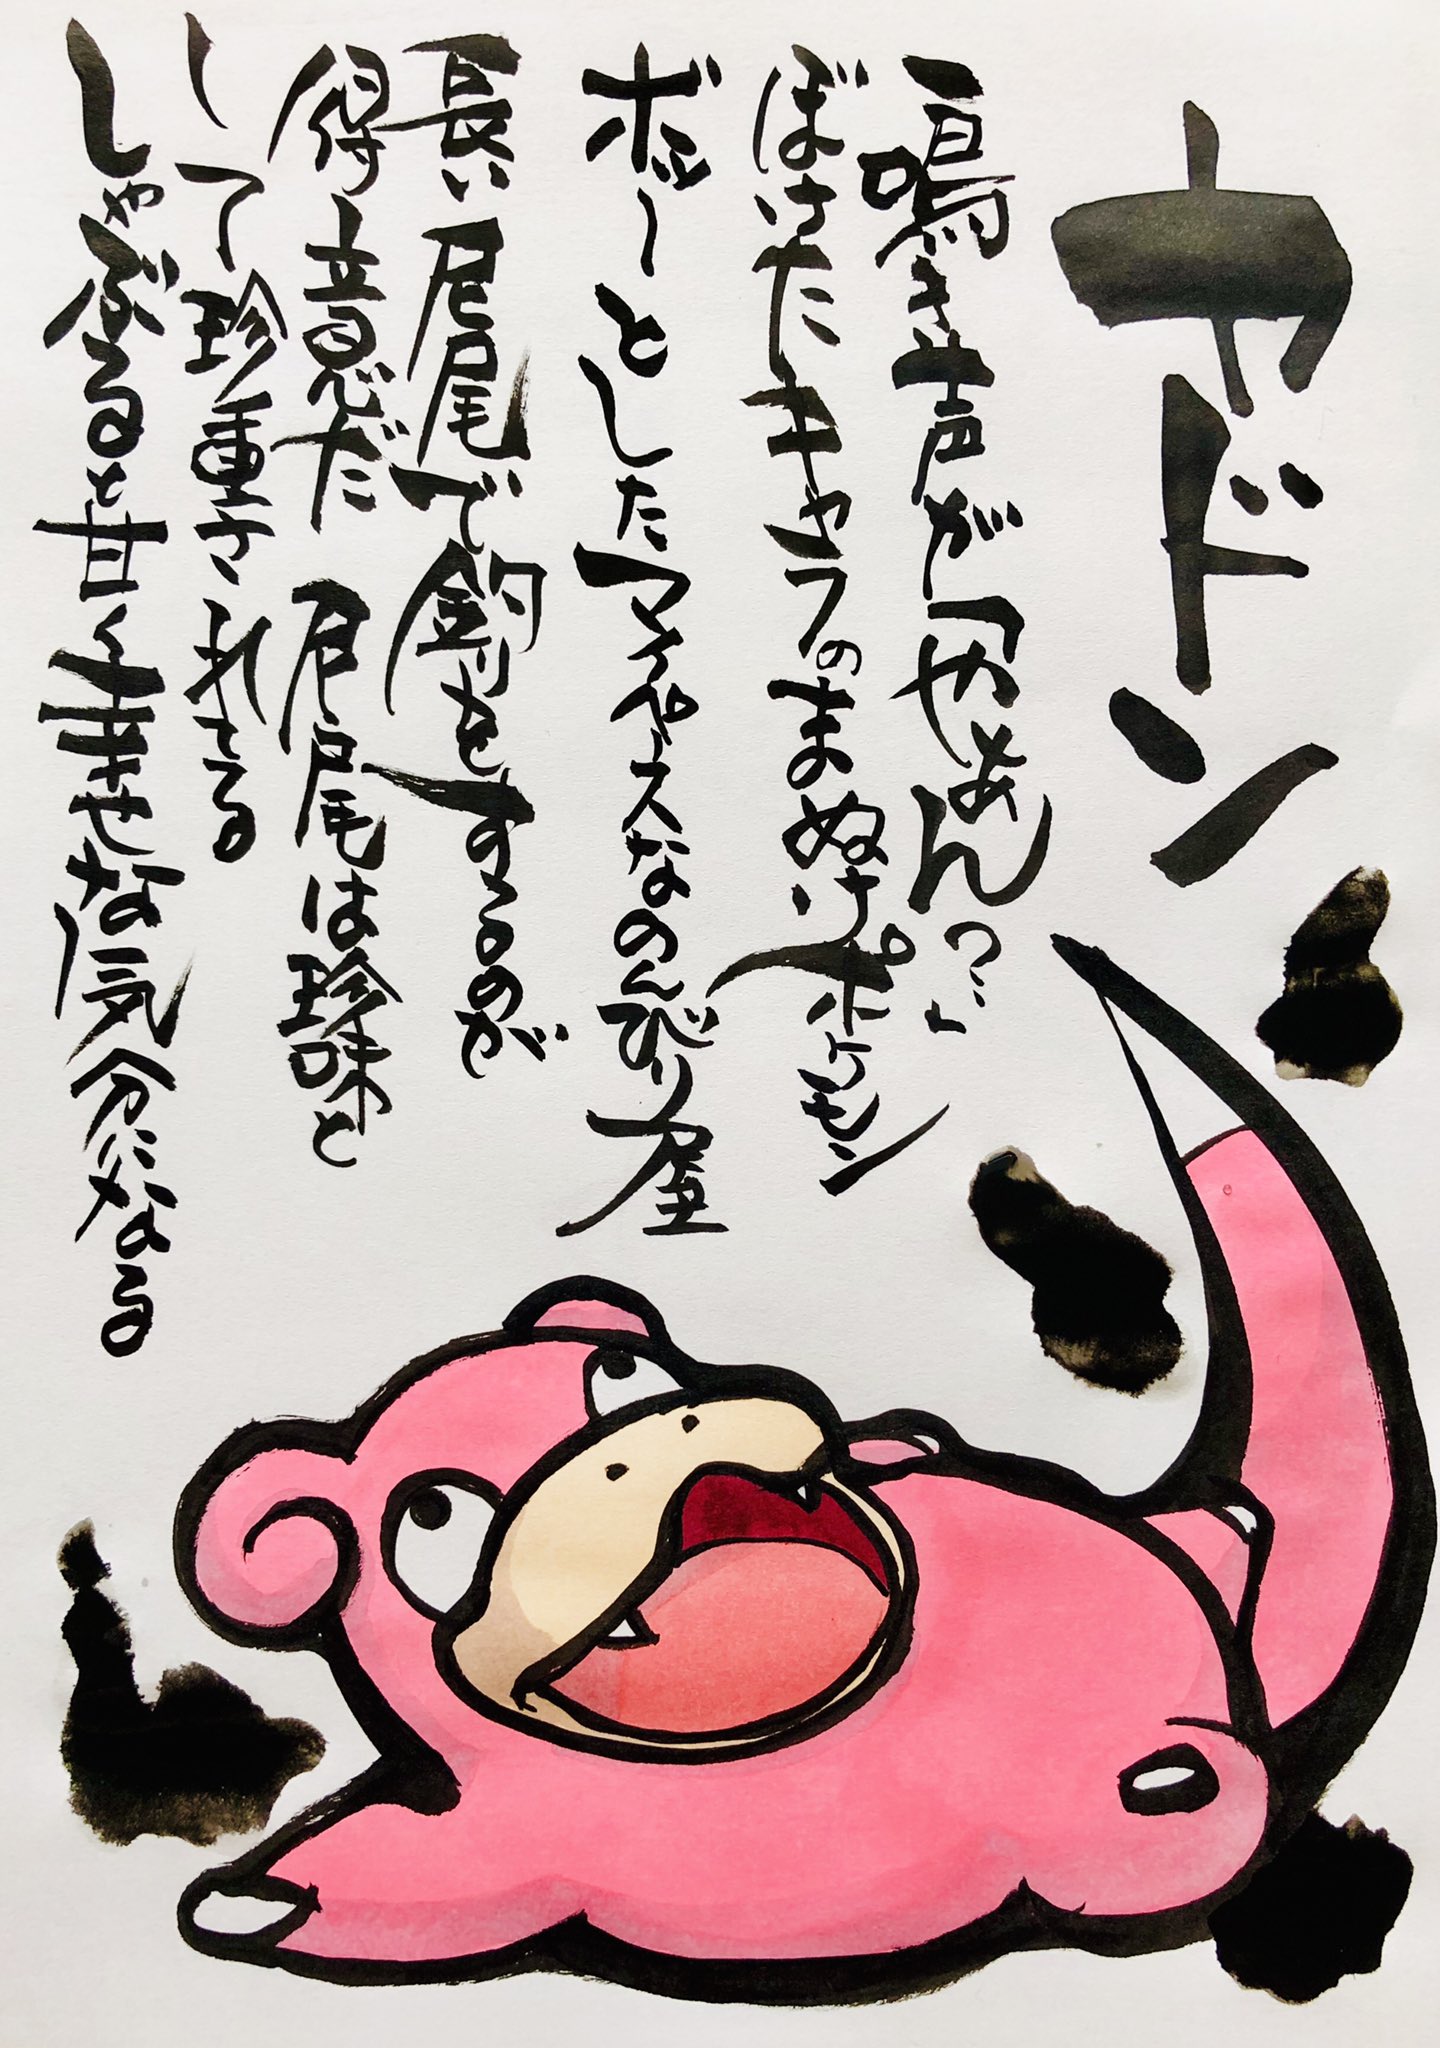 ヤドン
鳴き声が「やぁん？」
ぼけたキャラのまぬけポケモン
ボッーとしたマイペースなのんびり屋
長い尻尾で釣りをするのが
得意だ 尻尾は珍味と
して珍重されてる
しゃぶると甘く幸せな気分になる